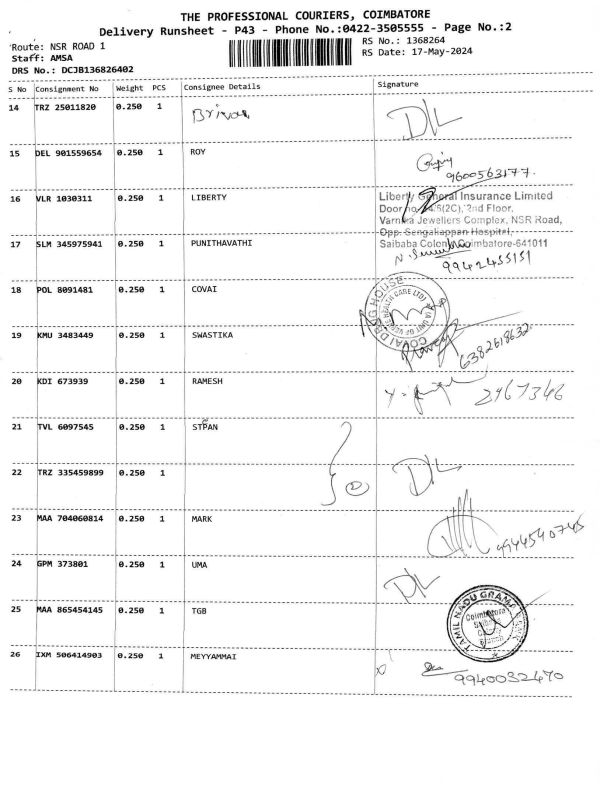 THE PROFESSIONAL COURIERS, COIMBATORE
Delivery Runsheet - P43 - Phone No.:0422-3505555 - Page No.:2
Route: NSR ROAD 1
RS No.: 1368264
Staff: AMSA
RS Date: 17-May-2024
DRS No.: DCJB136826402
S No Consignment No Weight PCS Consignee Details Signature
14 TRZ 25011820 0.250 1
15 DEL 901559654 0.250 1 ROY
9600563177.
16 VLR 1030311 0.250 1 LIBERTY
Liberty General Insurance Limited
2nd Floor,
Varnika Jewellers Complex, NSR Road,
Opp. Sengaliappan Hospital,
17 SLM 345975941 0.250 1 PUNITHAVATHI
Saibaba Colony, Coimbatore-641011
9942455151
18 POL 8091481 0.250 1 COVAI
COVAI DRUG HOUSE
19 KMU 3483449 0.250 1 SWASTIKA
6382618632
20 KDI 673939 0.250 1 RAMESH
2467346
21 TVL 6097545 0.250 1
22 TRZ 335459899 0.250 1
2
DL
23 MAA 704060814 0.250 1 MARK
9944540745
24 GPM 373801 0.250 1 UMA
DL
25 MAA 865454145 0.250 1 TGB
TAMIL NADU GRAMA
Coimbatore
26 IXM 506414903 0.250 1 MEYYAMMAI
9940032470